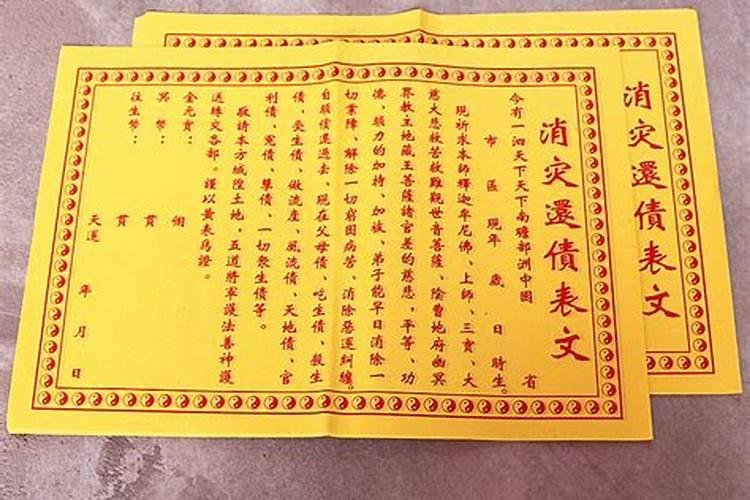 消灾還債表文
今有一泗天下天下南贍部洲中國 省
市 區 現年 歲 日 時生。
現祈求本師釋迦牟尼佛、上師、三寶、大
慈大悲救苦救難觀世音菩薩、陰曹地府幽冥
界教主地藏王菩薩諸官差的慈悲，平等、功
德、願力的加持、加被、弟子能早日消除一
切業障、解除一切窮困病苦、消除惡運糾纏。
自願償還過去、現在父母債、吃生債、殺生
債、受生債、做流產、風流債、天地債、官
利債、冤債、孽債、一切衆生債等。
敬請本方城隍土地，五道將軍護法善神護
送轉交各部。謹以黃表爲證。
金元寶： 個
冥幣： 貫
往生幣： 貫
天運 年 月 日
消灾還債表文